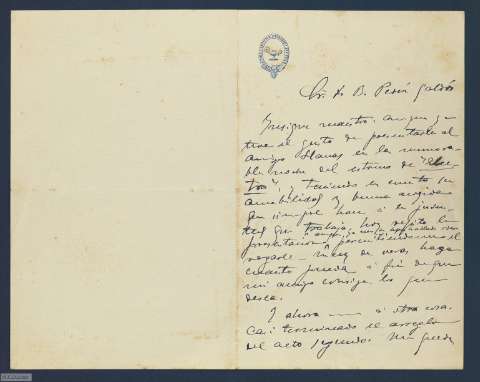 Sr. D. B. Perez Galdós
Insigne maestro: aunque ya
tuve el gusto de presentarle al
amigo Llanas en la memora-
ble noche del estreno de "Elec-
tra", y teniendo en cuenta su
amabilidad y buena acogida
que siempre hace á la juven-
tud que trabaja, hoy repito la
presentacion permitiendome el
rogarle muy de veras, haga
cuanto pueda á fin de que
mi amigo consiga lo que
desea.
Y ahora á otra cosa.
Casi terminado el arreglo
del acto segundo. Me queda